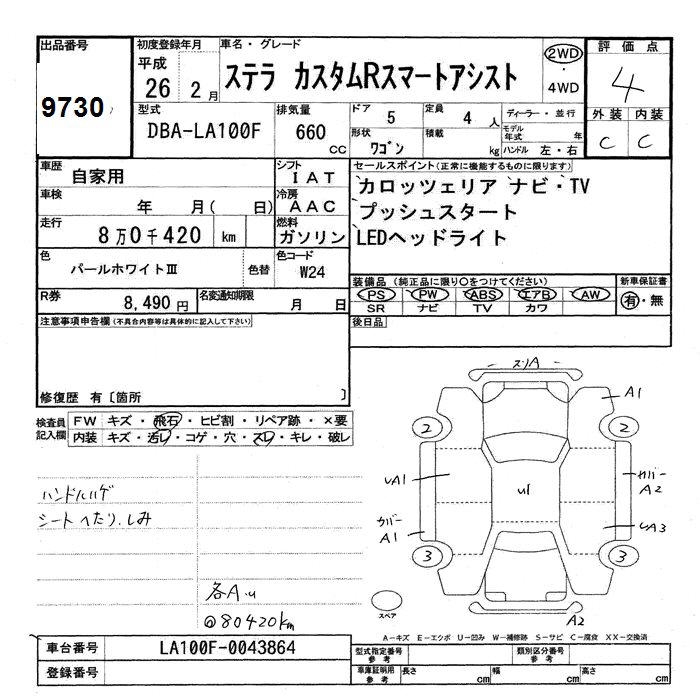 出品番号
9730
初度登録年月
平成
26 2月
車名・グレード
ステラ カスタムRスマートアシスト
2WD
・
4WD
評価点
4
外装 内装
C C
型式
DBA-LA100F
排気量
660 cc
ドア 5
定員 4 人
形状 ワゴン
積載 kg
ディーラー・並行
モデル年式 年
ハンドル 左・右
車歴
自家用
シフト
IAT
車検
年 月( 日)
冷房
AAC
走行
8万0千420 km
燃料
ガソリン
色
パールホワイトⅢ
色替
色コード
W24
R券
8,490円
名変通知期限
月 日
セールスポイント(正常に機能するものに限ります)
カロッツェリア ナビ・TV
プッシュスタート
LEDヘッドライト
装備品(純正品に限り○をつけてください)
PS PW ABS エアB AW
SR ナビ TV カワ
新車保証書
有・無
後日品
注意事項申告欄(不具合内容等は具体的に記入して下さい)
修復歴 有〔箇所 〕
検査員記入欄
FW キズ・飛石・ヒビ割・リペア跡・×要
内装 キズ・汚レ・コゲ・穴・スレ・キレ・破レ
ハンドルハゲ
シートへたり、しみ
各A.u
@80420km
スリA
A1
2
2
uA1
u1
カバー
A2
カバー
A1
uA3
3
3
スペア
A2
A-キズ E-エクボ U-凹み W-補修跡 S-サビ C-腐食 XX-交換済
車台番号
LA100F-0043864
登録番号
型式指定番号
参考
類別区分番号
参考
車庫証明用
参考
長さ cm
幅 cm
高さ cm